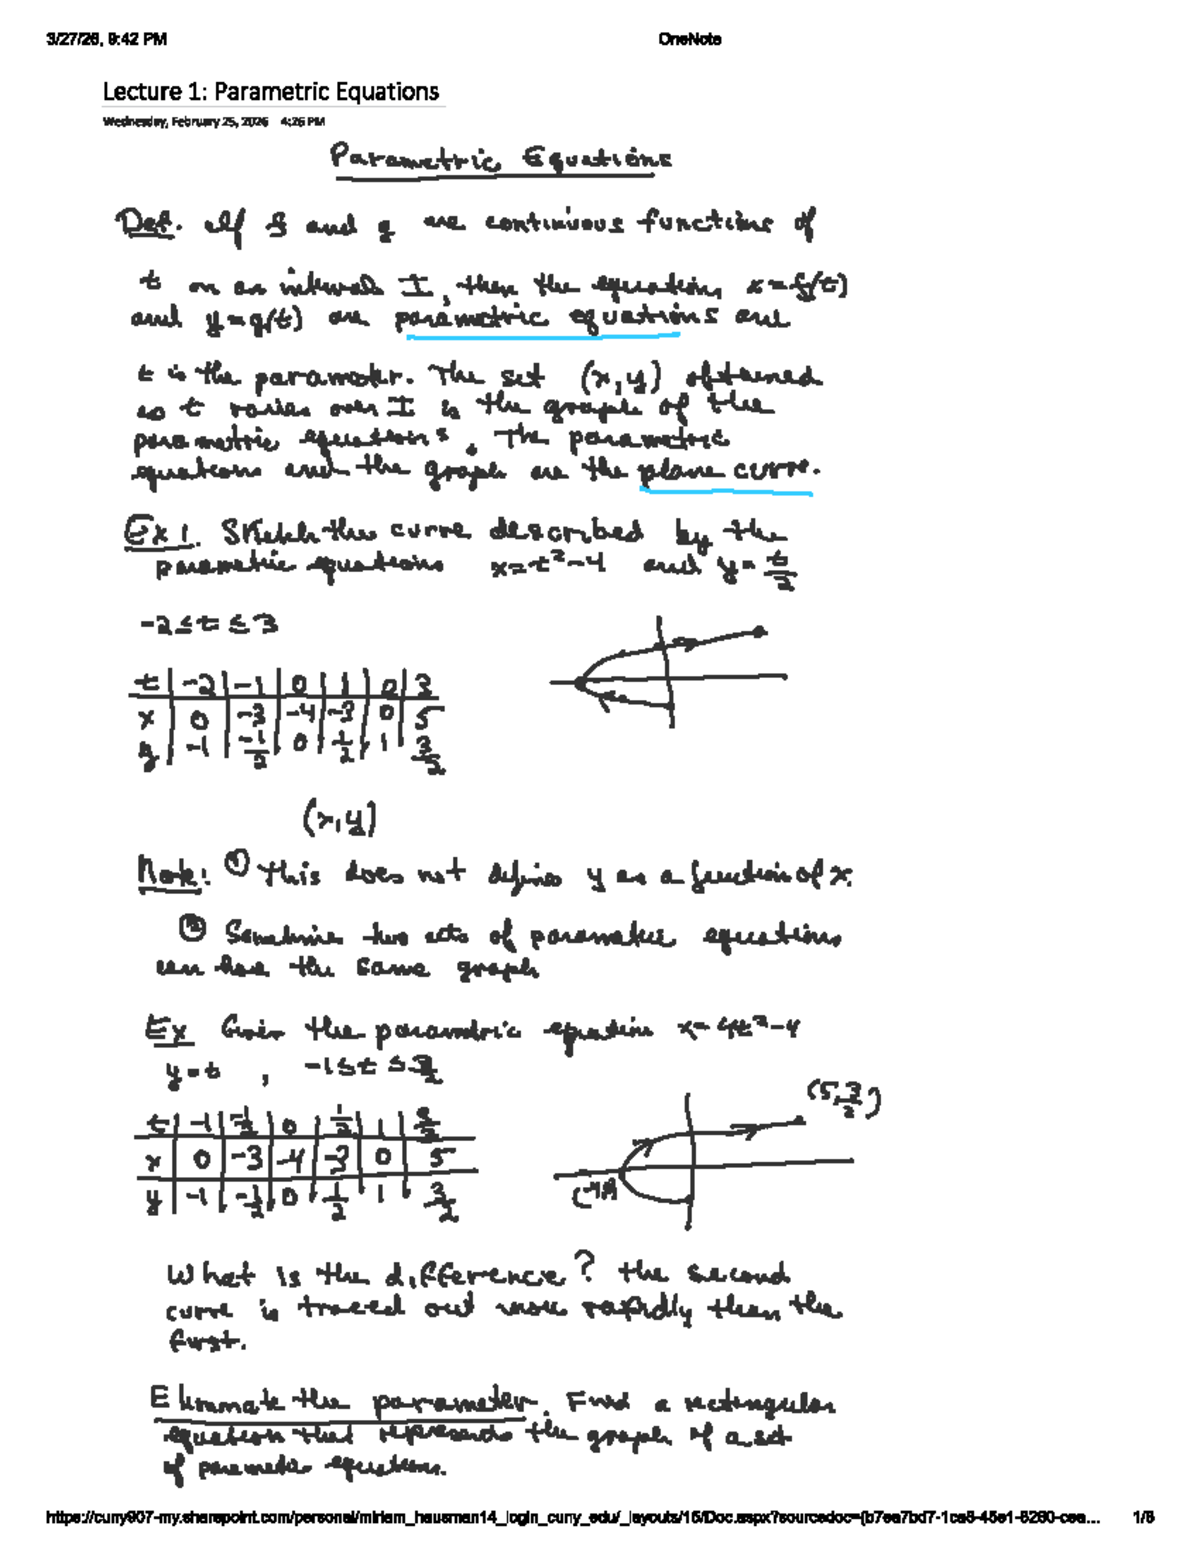 3/27/26, 9:42 PM
OneNote
Lecture 1: Parametric Equations
Wednesday, February 25, 2026 4:26 PM
Parametric Equations
Def. If f and g are continuous functions of
t on an interval I, then the equations x=f(t)
and y=g(t) are parametric equations and
t is the parameter. The set (x,y) obtained
as t varies over I is the graph of the
parametric equations. The parametric
equations and the graph are the plane curve.
Ex 1. Sketch the curve described by the
parametric equations x=t²-4 and y=t/2
-2≤t≤3
t | -2 | -1 | 0 | 1 | 0 | 3
x | 0 | -3 | -4 | -3 | 0 | 5
y | -1 | -1/2 | 0 | 1/2 | 1 | 3/2
(x,y)
Note: ① This does not defines y as a function of x.
② Sometime two sets of parametric equations
can have the same graph
Ex Given the parametric equation x=4t²-4
y=t, -1≤t≤3/2
t | -1 | -1/2 | 0 | 1/2 | 1 | 3/2
x | 0 | -3 | -4 | -3 | 0 | 5
y | -1 | -1/2 | 0 | 1/2 | 1 | 3/2
(5,3/2)
(-4,0)
What is the difference? the second
curve is traced out more rapidly than the
first.
Eliminate the parameter. Find a rectangular
equation that represents the graph of a set
of parametric equations.
https://cuny907-my.sharepoint.com/personal/miriam_hausman14_login_cuny_edu/_layouts/15/Doc.aspx?sourcedoc={b7ea7bd7-1ca8-45e1-8260-cea...
1/8